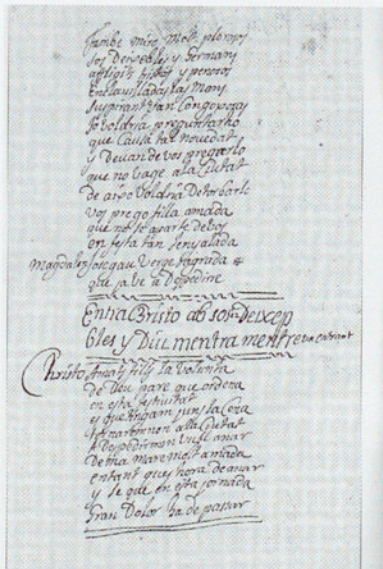 També miro molt plorosos
sos Dexebles y Germans
afligits tristos y penosos
Enclavilladas las Mans
Suspirant tan Congoxosos
Jo voldria preguntarho
que Causa tal novedat
y Devan de vos pregarlo
que no vage a la Ciutat
de aixo Voldria Destorbarlo
vos prego filla amada
que no se aparte de vos
en festa tan senyalada
Magdalena Verge Sagrada
que ja ve a Despedirse
Entra Christo ab sos Deixep
bles y Diu mentra mentre van entrant
Christo Amats fills la Volunta
de Deu pare que ordena
en esta festivitat
y que tingam junts la Cena
a la Ciutat
A Despedirmen vull anar
De ma Mare molt amada
entant ques hora de anar
y se que en esta jornada
Gran Dolor ha de passar